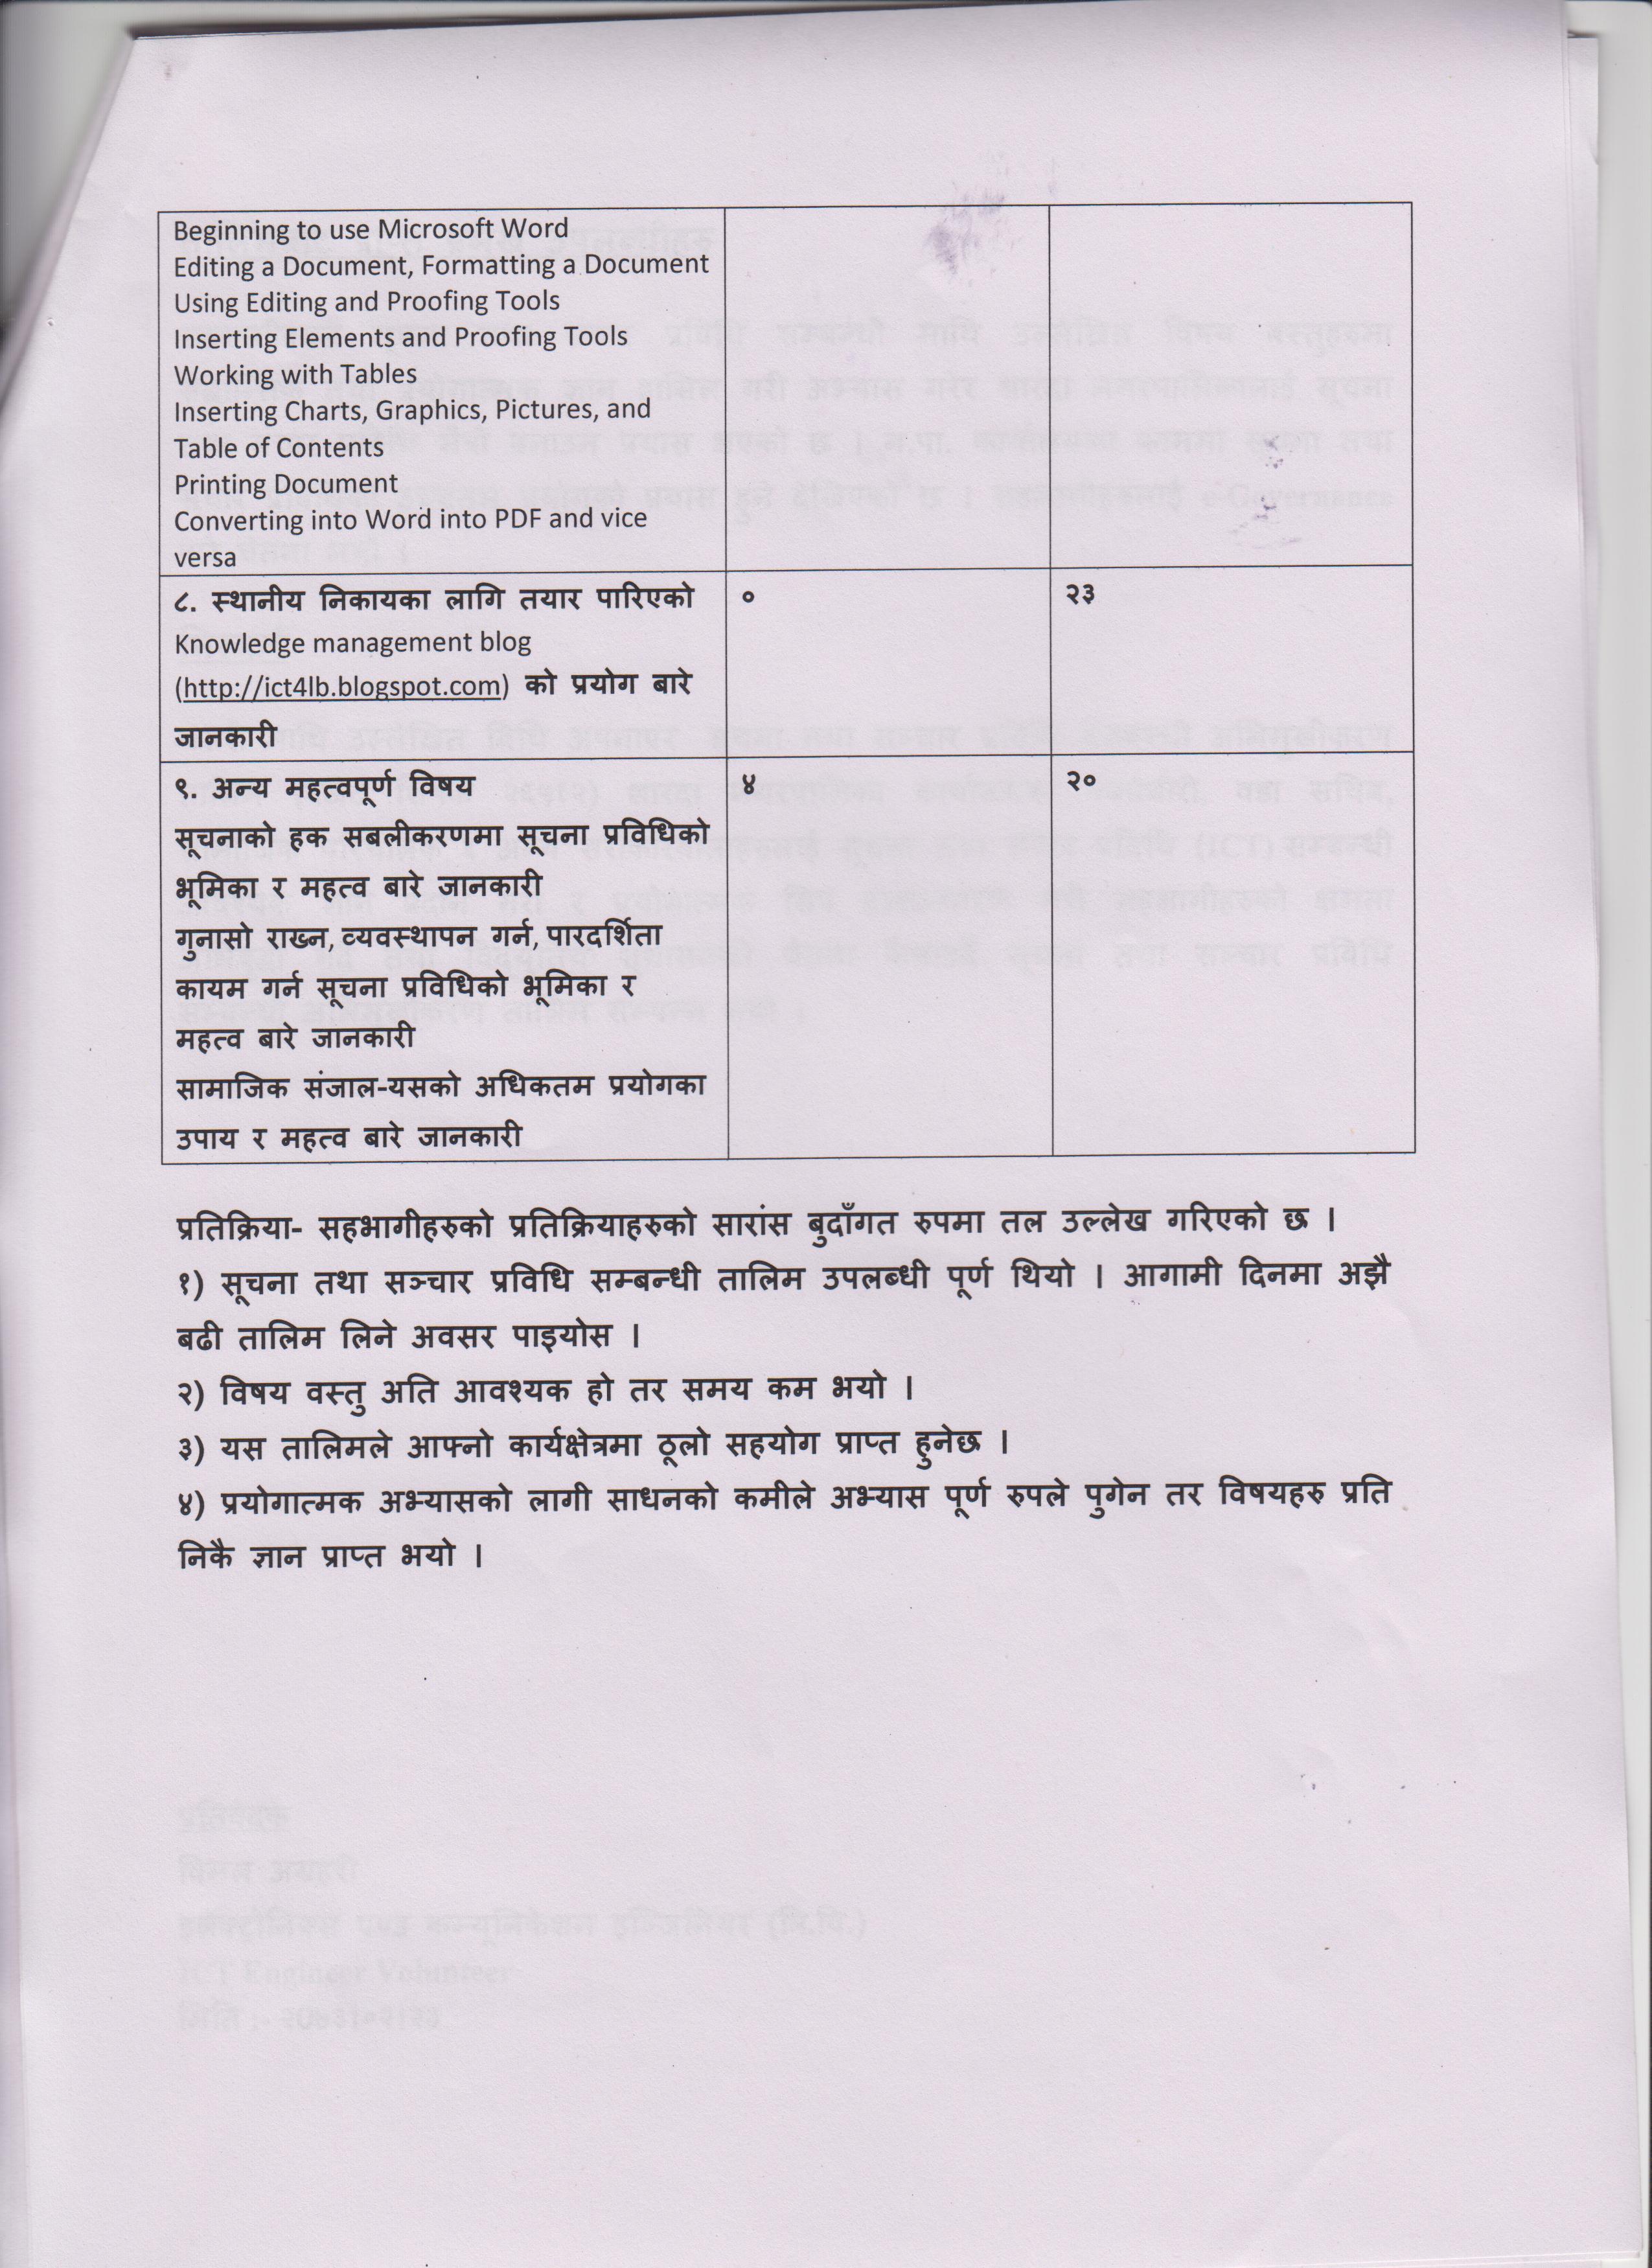 Beginning to use Microsoft Word
Editing a Document, Formatting a Document
Using Editing and Proofing Tools
Inserting Elements and Proofing Tools
Working with Tables
Inserting Charts, Graphics, Pictures, and
Table of Contents
Printing Document
Converting into Word into PDF and vice
versa
८. स्थानीय निकायका लागि तयार पारिएको ० २३
Knowledge management blog
(http://ict4lb.blogspot.com) को प्रयोग बारे
जानकारी
९. अन्य महत्वपूर्ण विषय ४ २०
सूचनाको हक सबलीकरणमा सूचना प्रविधिको
भूमिका र महत्व बारे जानकारी
गुनासो राख्न, व्यवस्थापन गर्न, पारदर्शिता
कायम गर्न सूचना प्रविधिको भूमिका र
महत्व बारे जानकारी
सामाजिक संजाल-यसको अधिकतम प्रयोगका
उपाय र महत्व बारे जानकारी
प्रतिक्रिया- सहभागीहरुको प्रतिक्रियाहरुको सारांस बुदाँगत रुपमा तल उल्लेख गरिएको छ ।
१) सूचना तथा सञ्चार प्रविधि सम्बन्धी तालिम उपलब्धी पूर्ण थियो । आगामी दिनमा अझै
बढी तालिम लिने अवसर पाइयोस ।
२) विषय वस्तु अति आवश्यक हो तर समय कम भयो ।
३) यस तालिमले आफ्नो कार्यक्षेत्रमा ठूलो सहयोग प्राप्त हुनेछ ।
४) प्रयोगात्मक अभ्यासको लागी साधनको कमीले अभ्यास पूर्ण रुपले पुगेन तर विषयहरु प्रति
निकै ज्ञान प्राप्त भयो ।